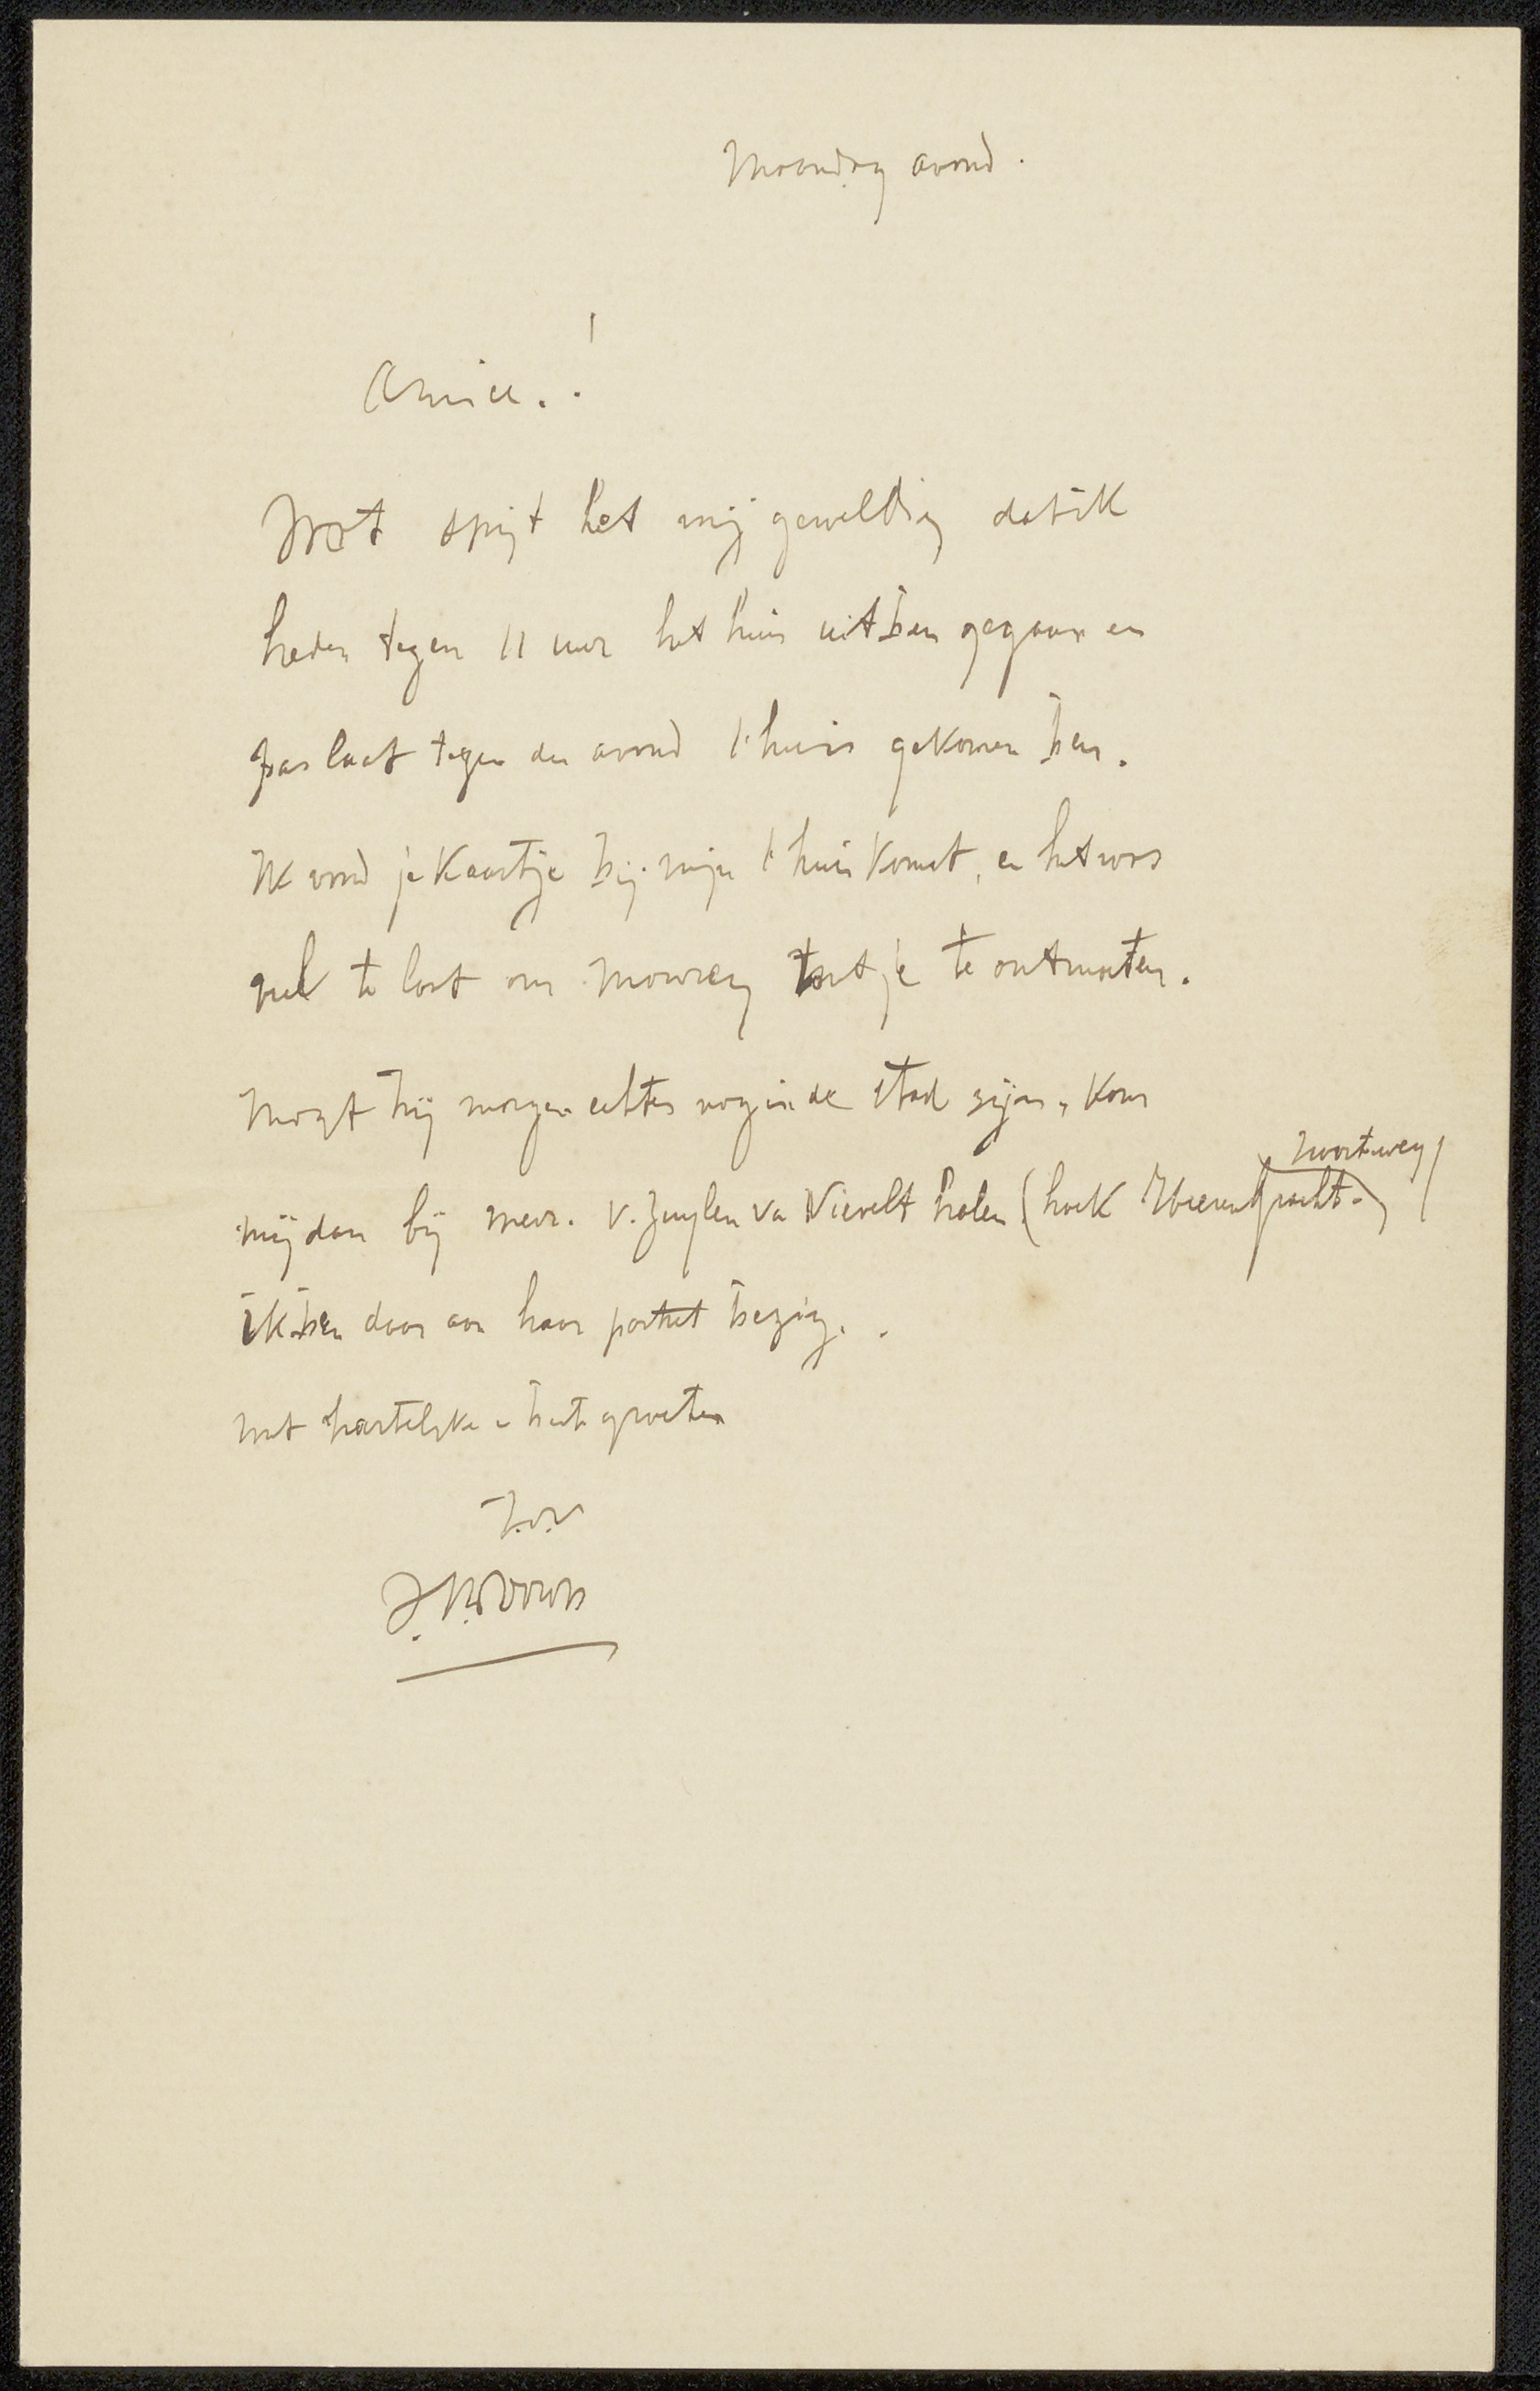 Maandag avond.
Amice.!
Wat spijt het mij geweldig dat ik
heden tegen 11 uur het huis uit ben gegaan en
pas laat tegen den avond t'huis gekomen ben.
Ik vond je kaartje bij mijn t'huiskomst, en het was
veel te laat om met je te ontmoeten.
Mogt hij morgen echter nog in de stad zijn, kom
mij dan bij mevr. v. Zuylen van Nievelt halen (hoek
ik ben daar aan haar portret bezig.
met hartelijke en beste groeten
t.à.v.